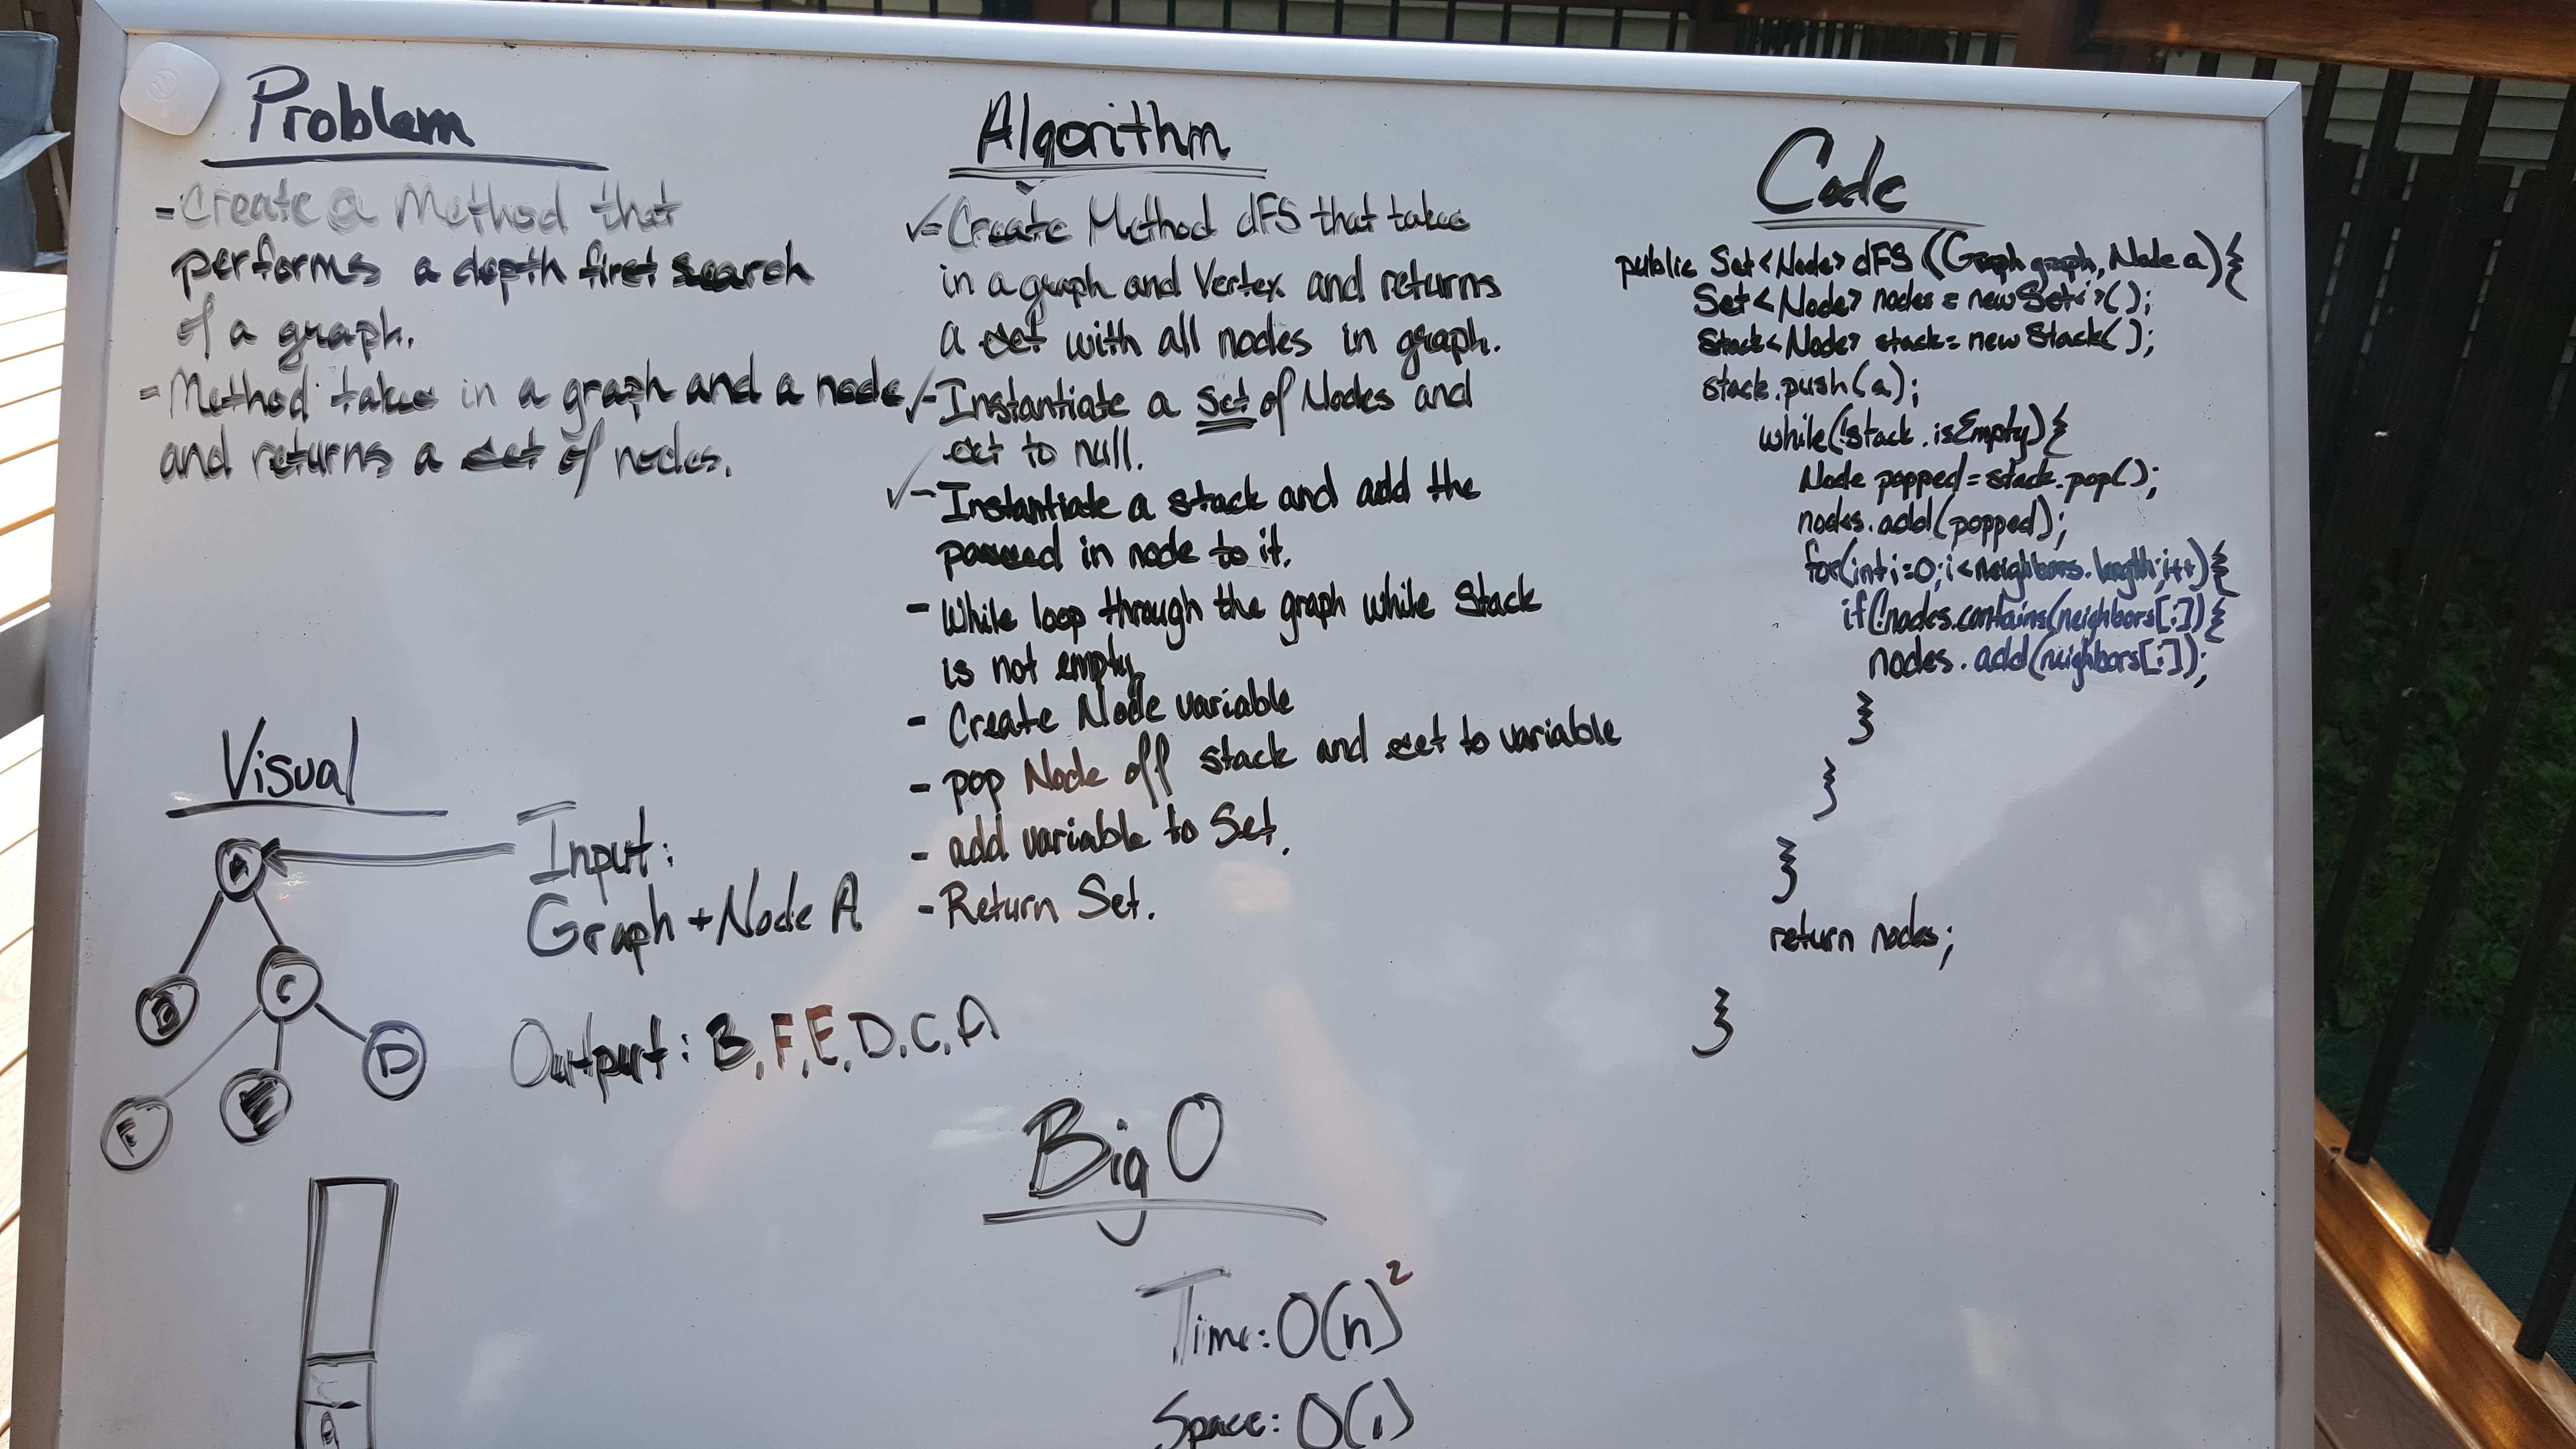 Problem
- Create a Method that
performs a depth first search
of a graph.
- Method takes in a graph and a node
and returns a set of nodes.
Visual
A
B
C
D
F
Input:
Graph + Node A
Output: B, F, E, D, C, A
Algorithm
✓- Create Method dFS that takes
in a graph and Vertex and returns
a set with all nodes in graph.
✓- Instantiate a set of Nodes and
set to null.
✓- Instantiate a stack and add the
passed in node to it.
- While loop through the graph while Stack
is not empty
- Create Node variable
- pop Node off stack and set to variable
- add variable to Set.
- Return Set.
Big O
Time: O(n)²
Space: O(1)
Code
public Set<Node> dFS (Graph graph, Node a){
Set<Node> nodes = new Set<>();
Stack<Node> stack = new Stack();
stack.push(a);
while(!stack.isEmpty){
Node popped = stack.pop();
nodes.add(popped);
for(int i=0; i<neighbors.length; i++){
if(!nodes.contains(neighbors[i]){
nodes.add(neighbors[i]);
}
}
}
return nodes;
}